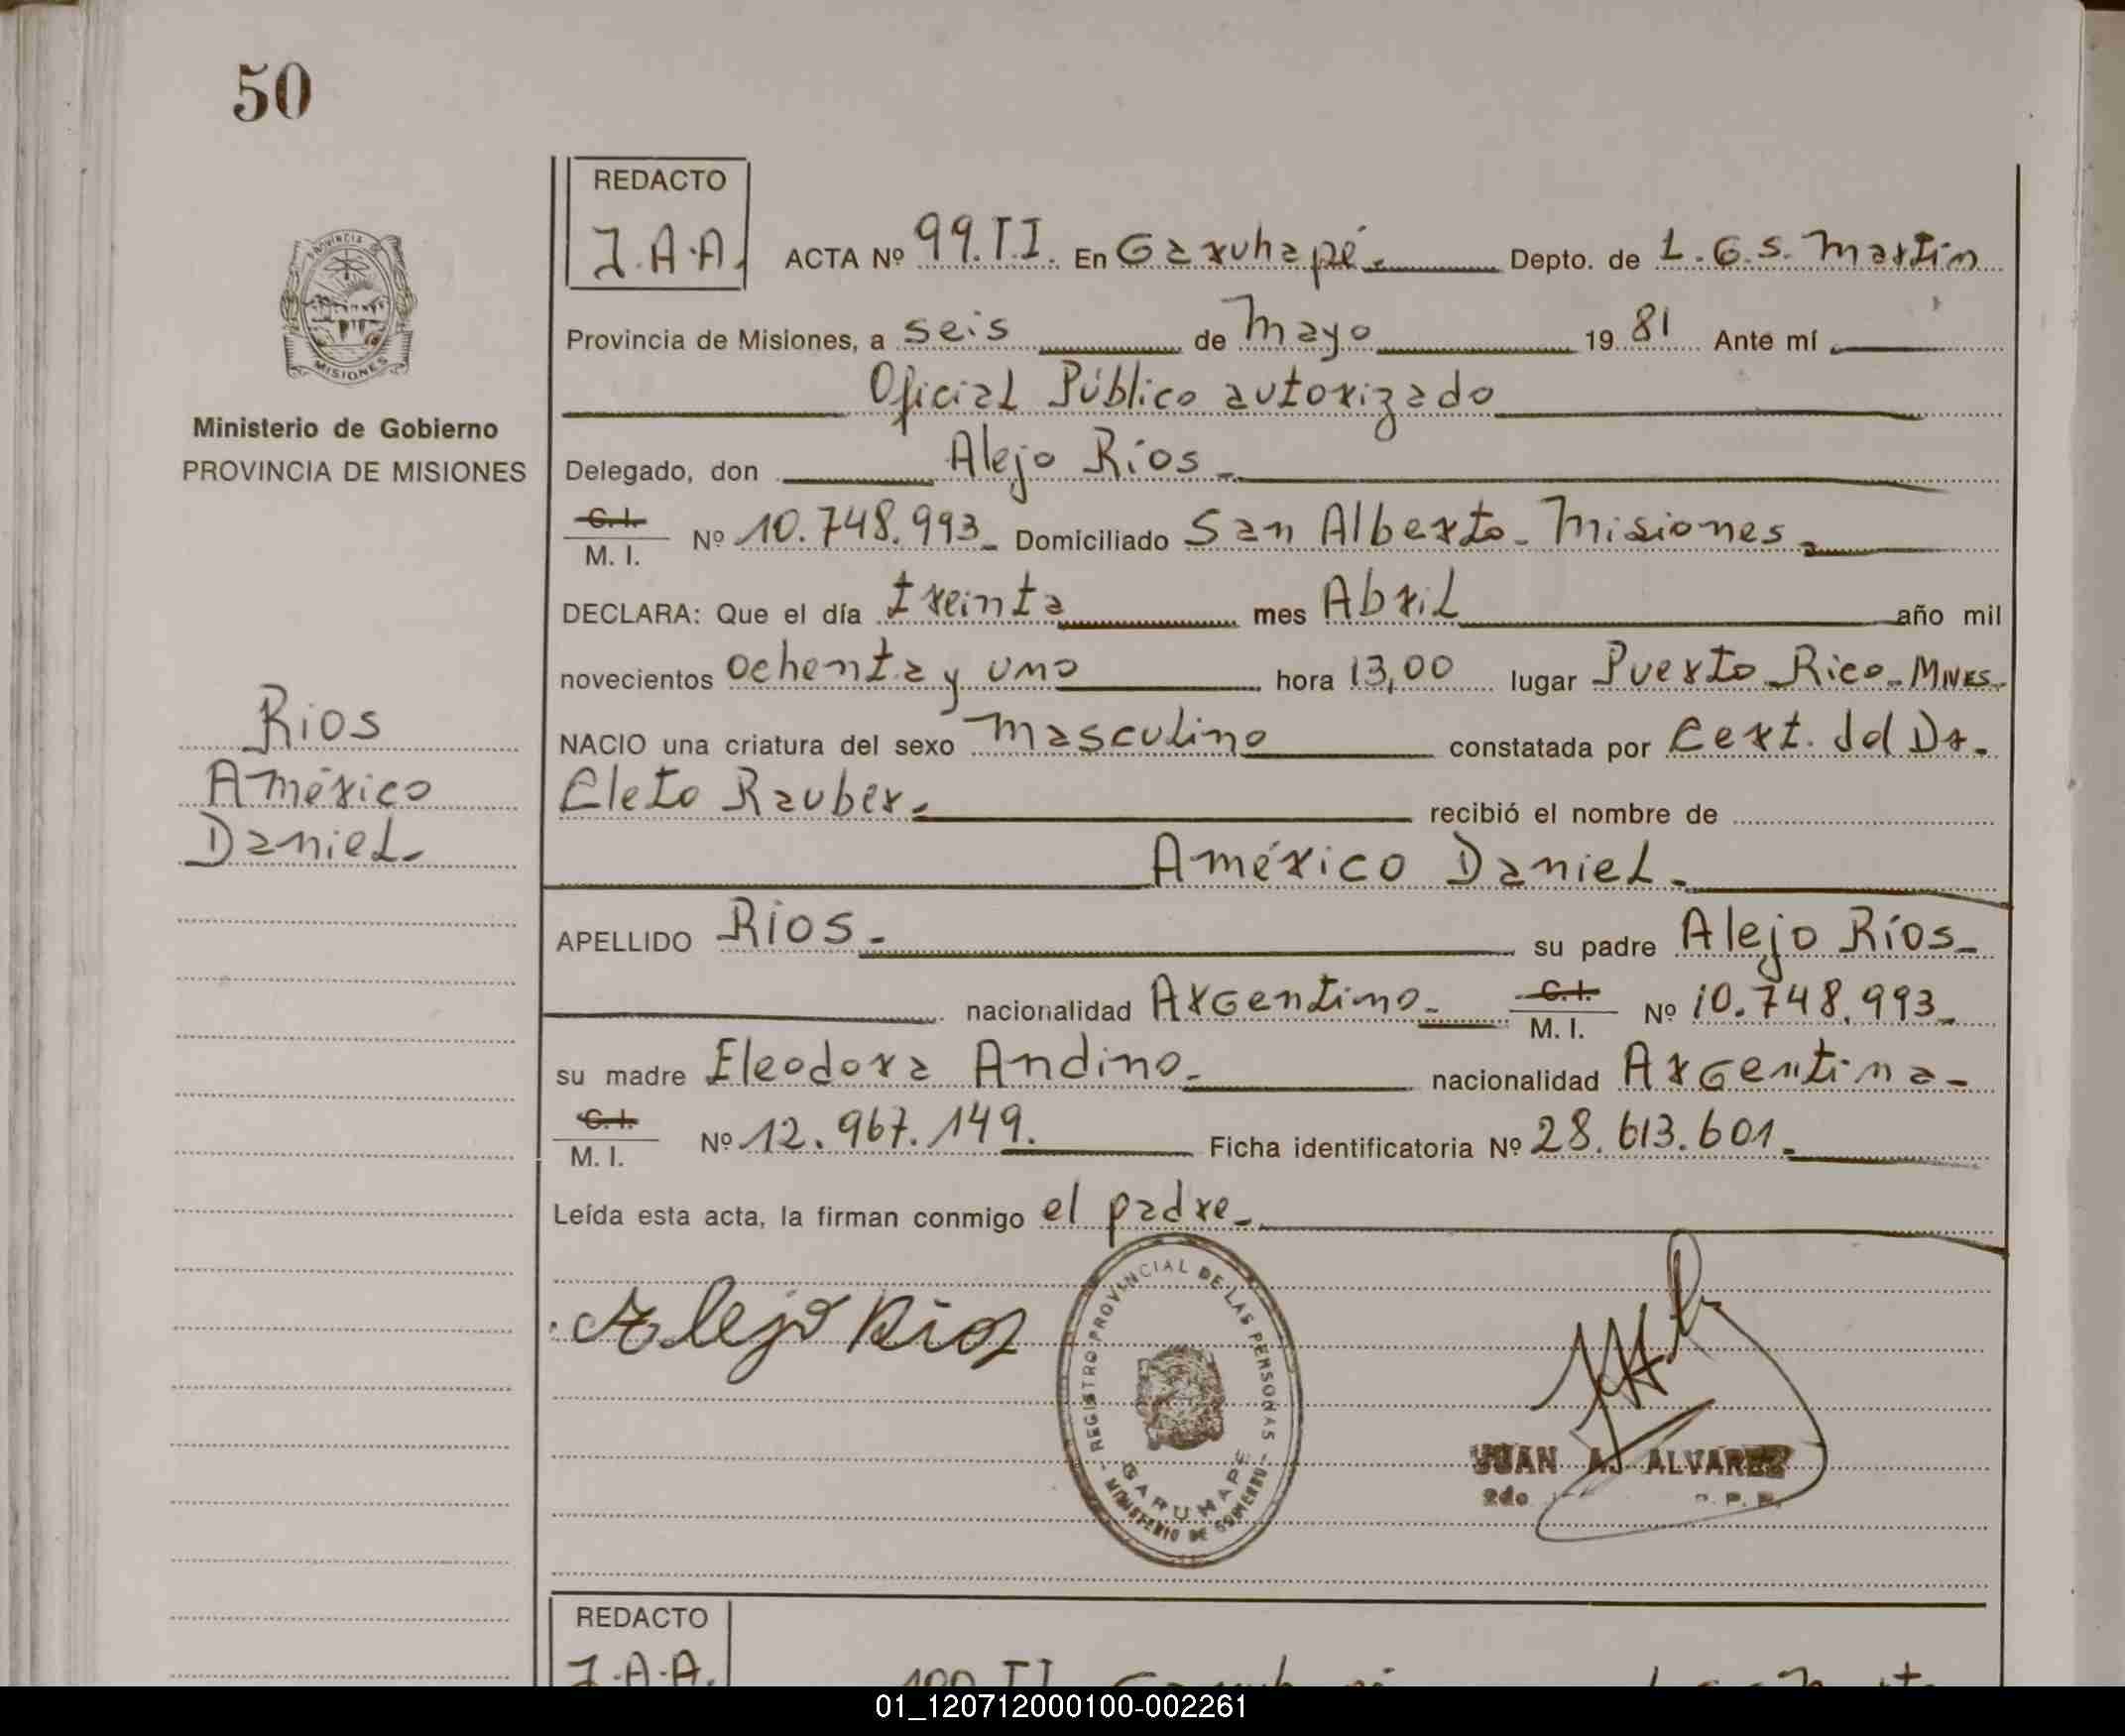 50
REDACTO
J.A.A.
ACTA Nº 99.T.I. En Garuhapé. Depto. de L.G.S. Martín
Provincia de Misiones, a seis de Mayo 1981 Ante mí
Oficial Público autorizado
Delegado, don Alejo Ríos
C.I.
M. I. Nº 10.748.993 Domiciliado San Alberto - Misiones
DECLARA: Que el día treinta mes Abril año mil
novecientos ochenta y uno hora 13,00 lugar Puerto Rico - MNES.
NACIO una criatura del sexo Masculino constatada por Cert. del Dr.
Cleto Rauber. recibió el nombre de
Américo Daniel
APELLIDO Ríos su padre Alejo Ríos
nacionalidad Argentino C.I.
M. I. Nº 10.748.993
su madre Eleodora Andino nacionalidad Argentina
C.I.
M. I. Nº 12.967.149. Ficha identificatoria Nº 28.613.601
Leída esta acta, la firman conmigo el padre
Alejo Rios
REGISTRO PROVINCIAL DE LAS PERSONAS
GARUHAPE
MINISTERIO DE GOBIERNO
JUAN A. ALVAREZ
2do
PROVINCIA DE
MISIONES
Ministerio de Gobierno
PROVINCIA DE MISIONES
Rios
Américo
Daniel
REDACTO
J.A.A.
01_120712000100-002261